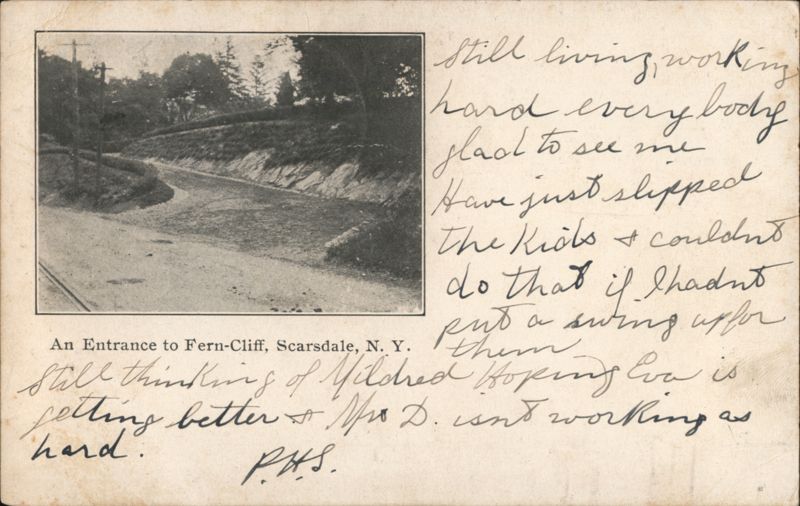 Still living, working
hard everybody
glad to see me
Have just slipped
the Kids & couldnt
do that if I hadnt
put a swing up for
them
An Entrance to Fern-Cliff, Scarsdale, N. Y.
Still thinking of Mildred Hoping Eva is
getting better & Mrs D. isnt working as
hard.
P.H.S.